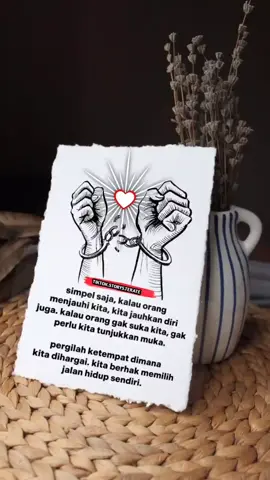 TIKTOK STORYSZEKATE
simpel saja, kalau orang
menjauhi kita, kita jauhkan diri
juga. kalau orang gak suka kita, gak
perlu kita tunjukkan muka.
pergilah ketempat dimana
kita dihargai. kita berhak memilih
jalan hidup sendiri.